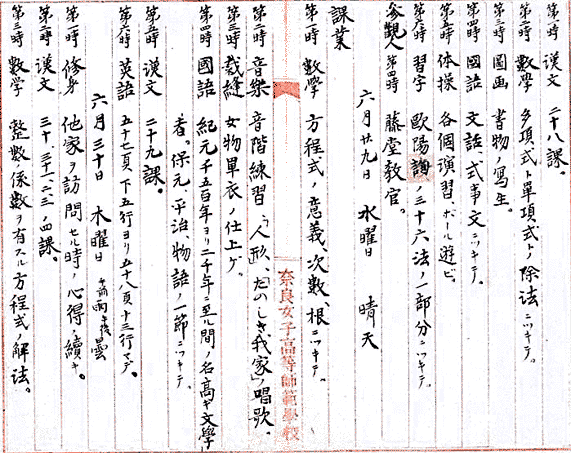 第一時 漢文 二十八課。
第二時 數學 多項式ト單項式トノ除法ニツキテ。
第三時 圖画 書物ノ寫生。
第四時 國語 文語、式事文ニツキテ。
第五時 体操 各個演習、ボール遊ビ。
第六時 習字 歐陽詢、三十六法ノ一部分ニツキテ。
参觀人 第四時 藤堂教官。
六月廿九日 水曜日 晴天
課業
第一時 數學 方程式ノ意義、次數、根ニツキテ。
奈良女子高等師範學校
第二時 音樂 音階練習、「人形」、「たのしき我家」ノ唱歌。
第三時 裁縫 女物單衣ノ仕上ゲ。
第四時 國語 紀元千五百年ヨリ二千年ニ至ル間ノ名高キ文學
者。保元、平治、物語ノ一節ニツキテ。
第五時 漢文 二十九課。
第六時 英語 五十七頁、下五行ヨリ五十八頁十三行マデ。
六月三十日 木曜日 午前雨午後曇
第一時 修身 他家ヲ訪問セル時ノ心得ノ續キ。
第二時 漢文 三十、三十一、二、三、四課。
第三時 數学 整數ノ係數ヲ有スル方程式ノ解法。